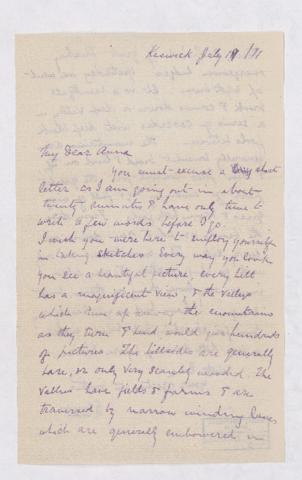 Keswick July 19/91
My Dear Anna
You must excuse a very short
letter as I am going out in about
twenty minutes & have only time to
write a few words before I go.
I wish you were here to employ yourself
in taking sketches. Every way you look
you see a beautiful picture, every hill
has a magnificent view, & the valleys
which run up the mountains
as they turn & bend would give hundreds
of pictures. The hillsides are generally
bare, or only very scantily wooded. The
Vallies have fields & farms & are
traversed by narrow winding lanes
which are generally embowered in